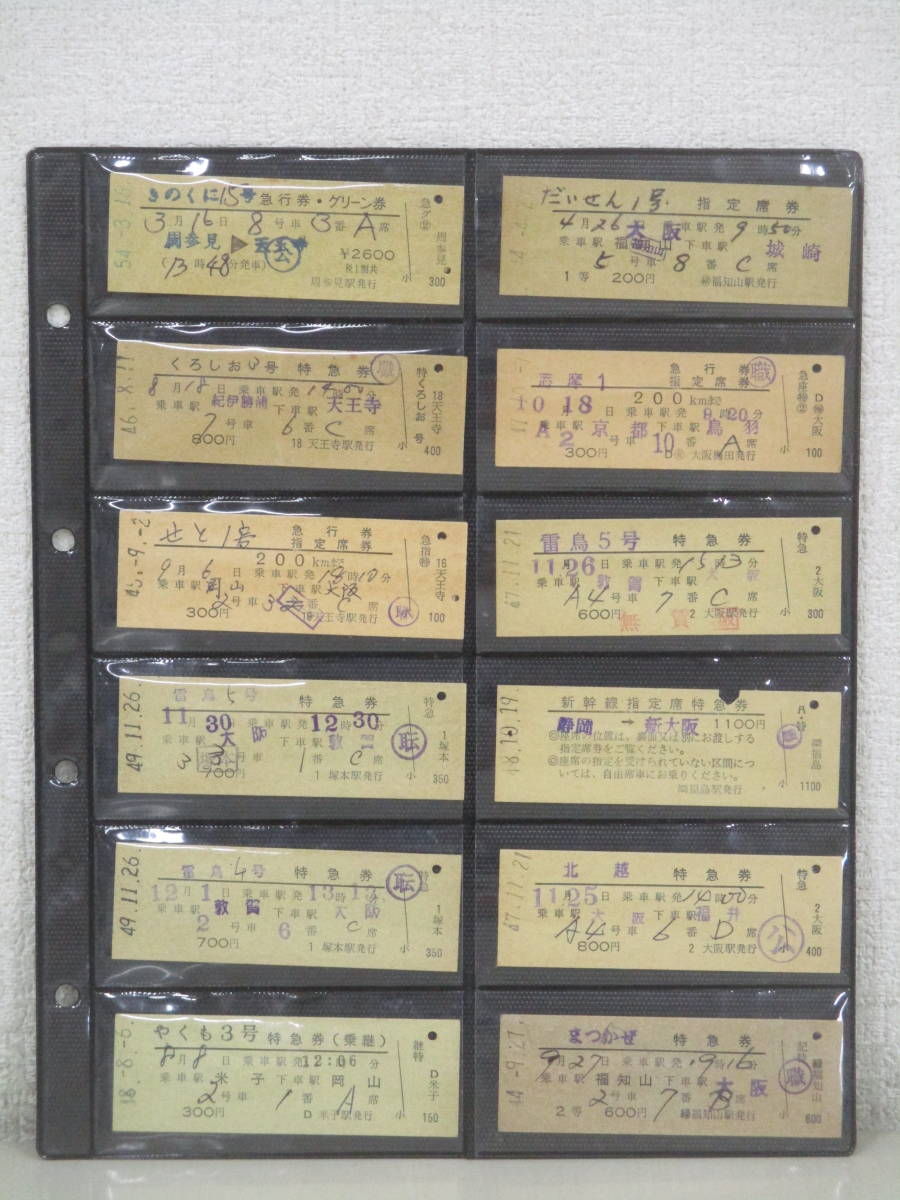 きのくに15号 急行券・グリーン券
3月16日 8号車 3番 A席
周参見 ▶ 天王寺
(13時48分発車) ¥2600
税1割共
周参見駅発行
急グ
周参見
300
だいせん1号 指定席券
4月26日 乗車駅発 9時50分
大阪
乗車駅 福知山 下車駅 城崎
5号車 8番 C席
1等 200円 福知山駅発行
くろしお 号 特急券 職
8月18日 乗車駅発 14 00分
乗車駅 紀伊勝浦 下車駅 天王寺
7号車 6番 C席
800円 18 天王寺駅発行 小
特くろしお 号
18天王寺
400
志摩1 急行券
指定席券 職
200kmまで
10月18日 乗車駅発 9時20分
乗車駅 京都 下車駅 鳥羽
A 2号車 10番 A席
300円 大阪梅田発行 小
D 大阪
100
せと1号 急行券
指定席券
200kmまで
9月6日 乗車駅発 18時10分
乗車駅 岡山 下車駅 大阪
300円 天王寺駅発行 小
急指
16天王寺
100
47.11.21
雷鳥5号 特急券
11月26日 乗車駅発 15 13分
乗車駅 敦賀 下車駅 大阪
A4号車 7番 C席
600円 2 大阪駅発行 小
無賃
特急
2大阪
300
49.11.26.
雷鳥5号 特急券
11月30日 乗車駅発 12時30分
乗車駅 大阪 下車駅 敦賀
3号車 1番 C席
700円 1 塚本駅発行 小
特急
1塚本
350
新幹線指定席特急券
静岡 → 新大阪 1100円
◎座席の位置は、裏面又は別にお渡しする
指定席券をご覧ください。
◎座席の指定を受けられていない区間につ
いては、自由席車にお乗りください。
福島駅発行 小
福島
1100
49.11.26.
雷鳥4号 特急券
12月1日 乗車駅発 13時13分
乗車駅 敦賀 下車駅 大阪
2号車 6番 C席
700円 1 塚本駅発行 小
特急
1塚本
350
47.11.21
北越 特急券
11月25日 乗車駅発 14 00分
乗車駅 大阪 下車駅 福井
A4号車 6番 D席
800円 2 大阪駅発行 小
公
特急
2大阪
400
やくも3号 特急券(乗継)
8月8日 乗車駅発 12:06分
乗車駅 米子 下車駅 岡山
2号車 1番 A席
300円 D 米子駅発行 小
継特
D米子
150
まつかぜ 特急券
9月27日 乗車駅発 9 16分
乗車駅 福知山 下車駅 大阪
2号車 7番 B席
2等 600円 福知山駅発行 小
職
福知山
600